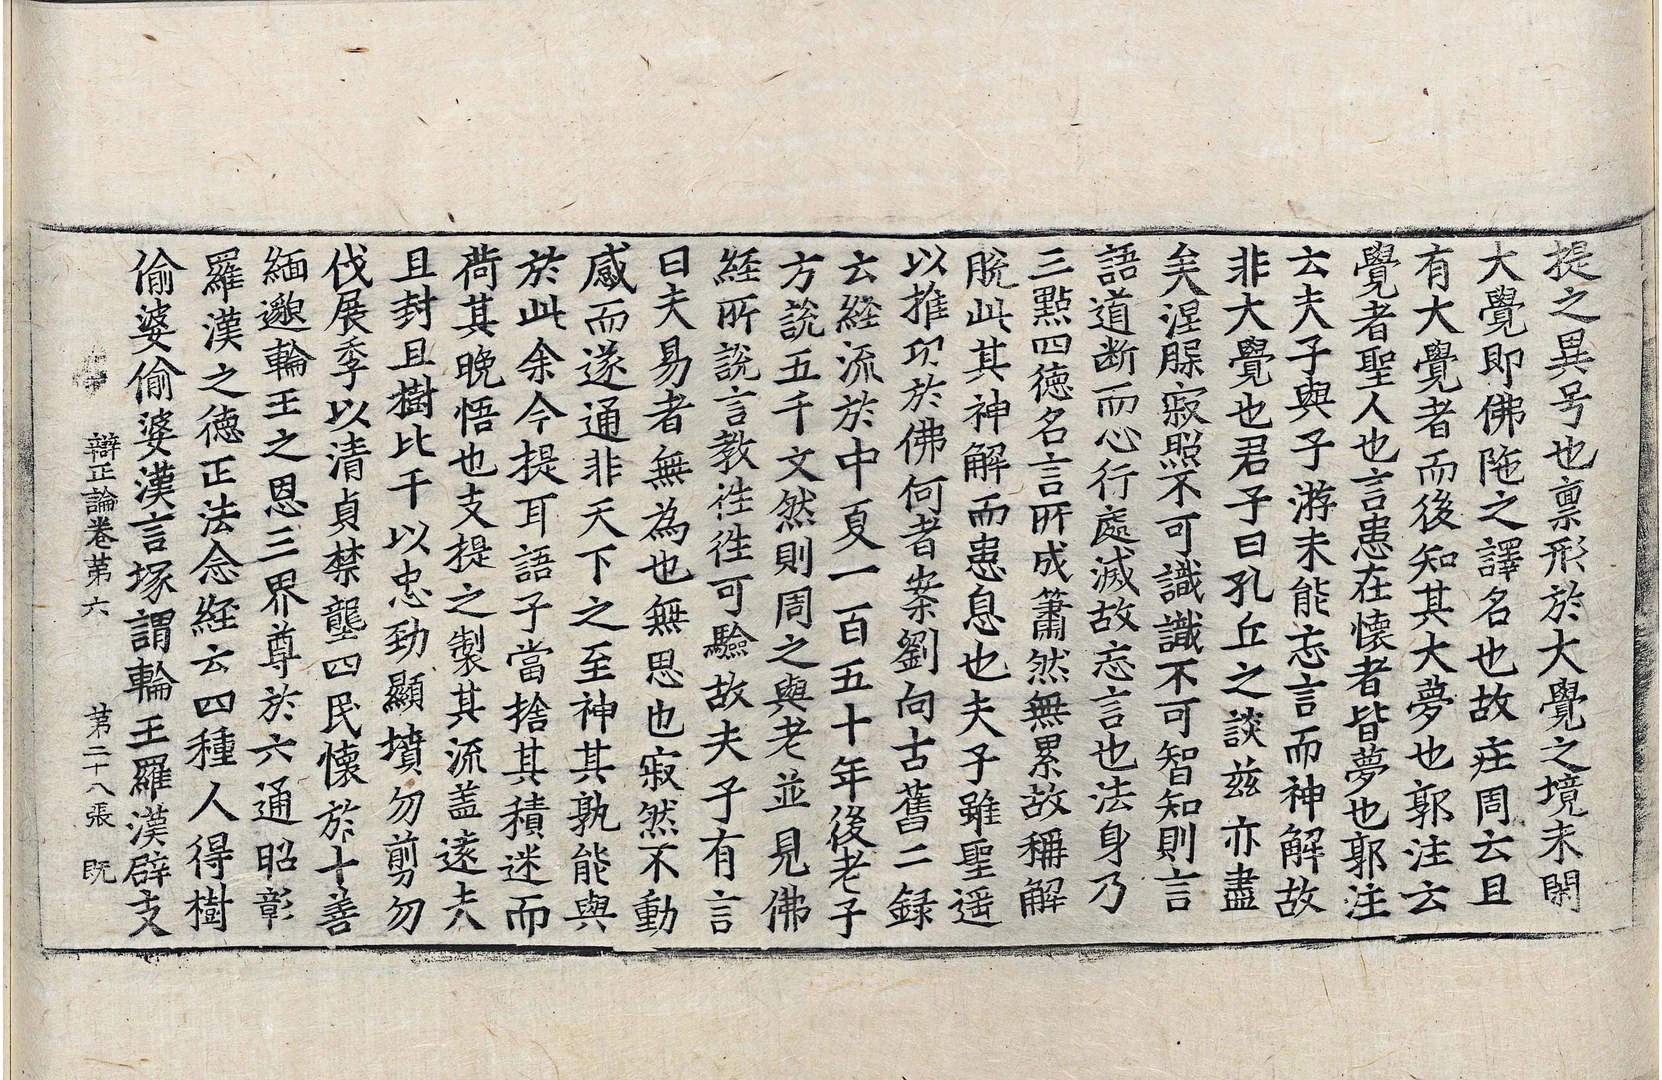 提之異号也禀形於大覺之境未閑
大覺即佛陁之譯名也故莊周云且
有大覺者而後知其大夢也郭注云
覺者聖人也言患在懷者皆夢也郭注
云夫子與子游未能忘言而神解故
非大覺也君子曰孔丘之談兹亦盡
矣涅槃寂照不可識識不可智知則言
語道断而心行處滅故忘言也法身乃
三點四德名言所成簫然無累故稱解
脫此其神解而患息也夫子雖聖遥
以推功於佛何者案劉向古舊二録
云経流於中夏一百五十年後老子
方說五千文然則周之與老並見佛
経所說言教往往可驗故夫子有言
曰夫易者無為也無思也寂然不動
感而遂通非天下之至神其孰能與
於此余今提耳語子當捨其積迷而
荷其晚悟也支提之製其流盖遠夫
且封且樹比干以忠勁顯墳勿剪勿
伐展季以清貞禁壟四民懷於十善
緬邈輪王之恩三界尊於六通昭彰
羅漢之德正法念経云四種人得樹
偷婆偷婆漢言塚謂輪王羅漢辟支
辯正論卷第六 第二十八張 既